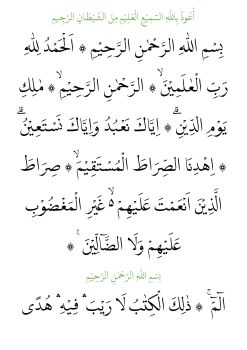 أَعُوذُ بِاللهِ السَّمِيْعِ الْعَلِيْمِ مِنَ الشَّيْطَانِ الرَّجِيمِ
بِسْمِ اللهِ الرَّحْمٰنِ الرَّحِيْمِ ۞ اَلْحَمْدُ لِلّٰهِ
رَبِّ الْعٰلَمِيْنَ ۙ ۞ الرَّحْمٰنِ الرَّحِيْمِ ۙ ۞ مٰلِكِ
يَوْمِ الدِّيْنِ ۗ ۞ اِيَّاكَ نَعْبُدُ وَاِيَّاكَ نَسْتَعِيْنُ ۗ
۞ اِهْدِنَا الصِّرَاطَ الْمُسْتَقِيْمَ ۙ ۞ صِرَاطَ
الَّذِيْنَ اَنْعَمْتَ عَلَيْهِمْ ەۙ غَيْرِ الْمَغْضُوْبِ
عَلَيْهِمْ وَلَا الضَّاۤلِّيْنَ ۞
بِسْمِ اللهِ الرَّحْمٰنِ الرَّحِيْمِ
الۤمّۤ ۚ ۞ ذٰلِكَ الْكِتٰبُ لَا رَيْبَ ۛ فِيْهِ ۛ هُدًى